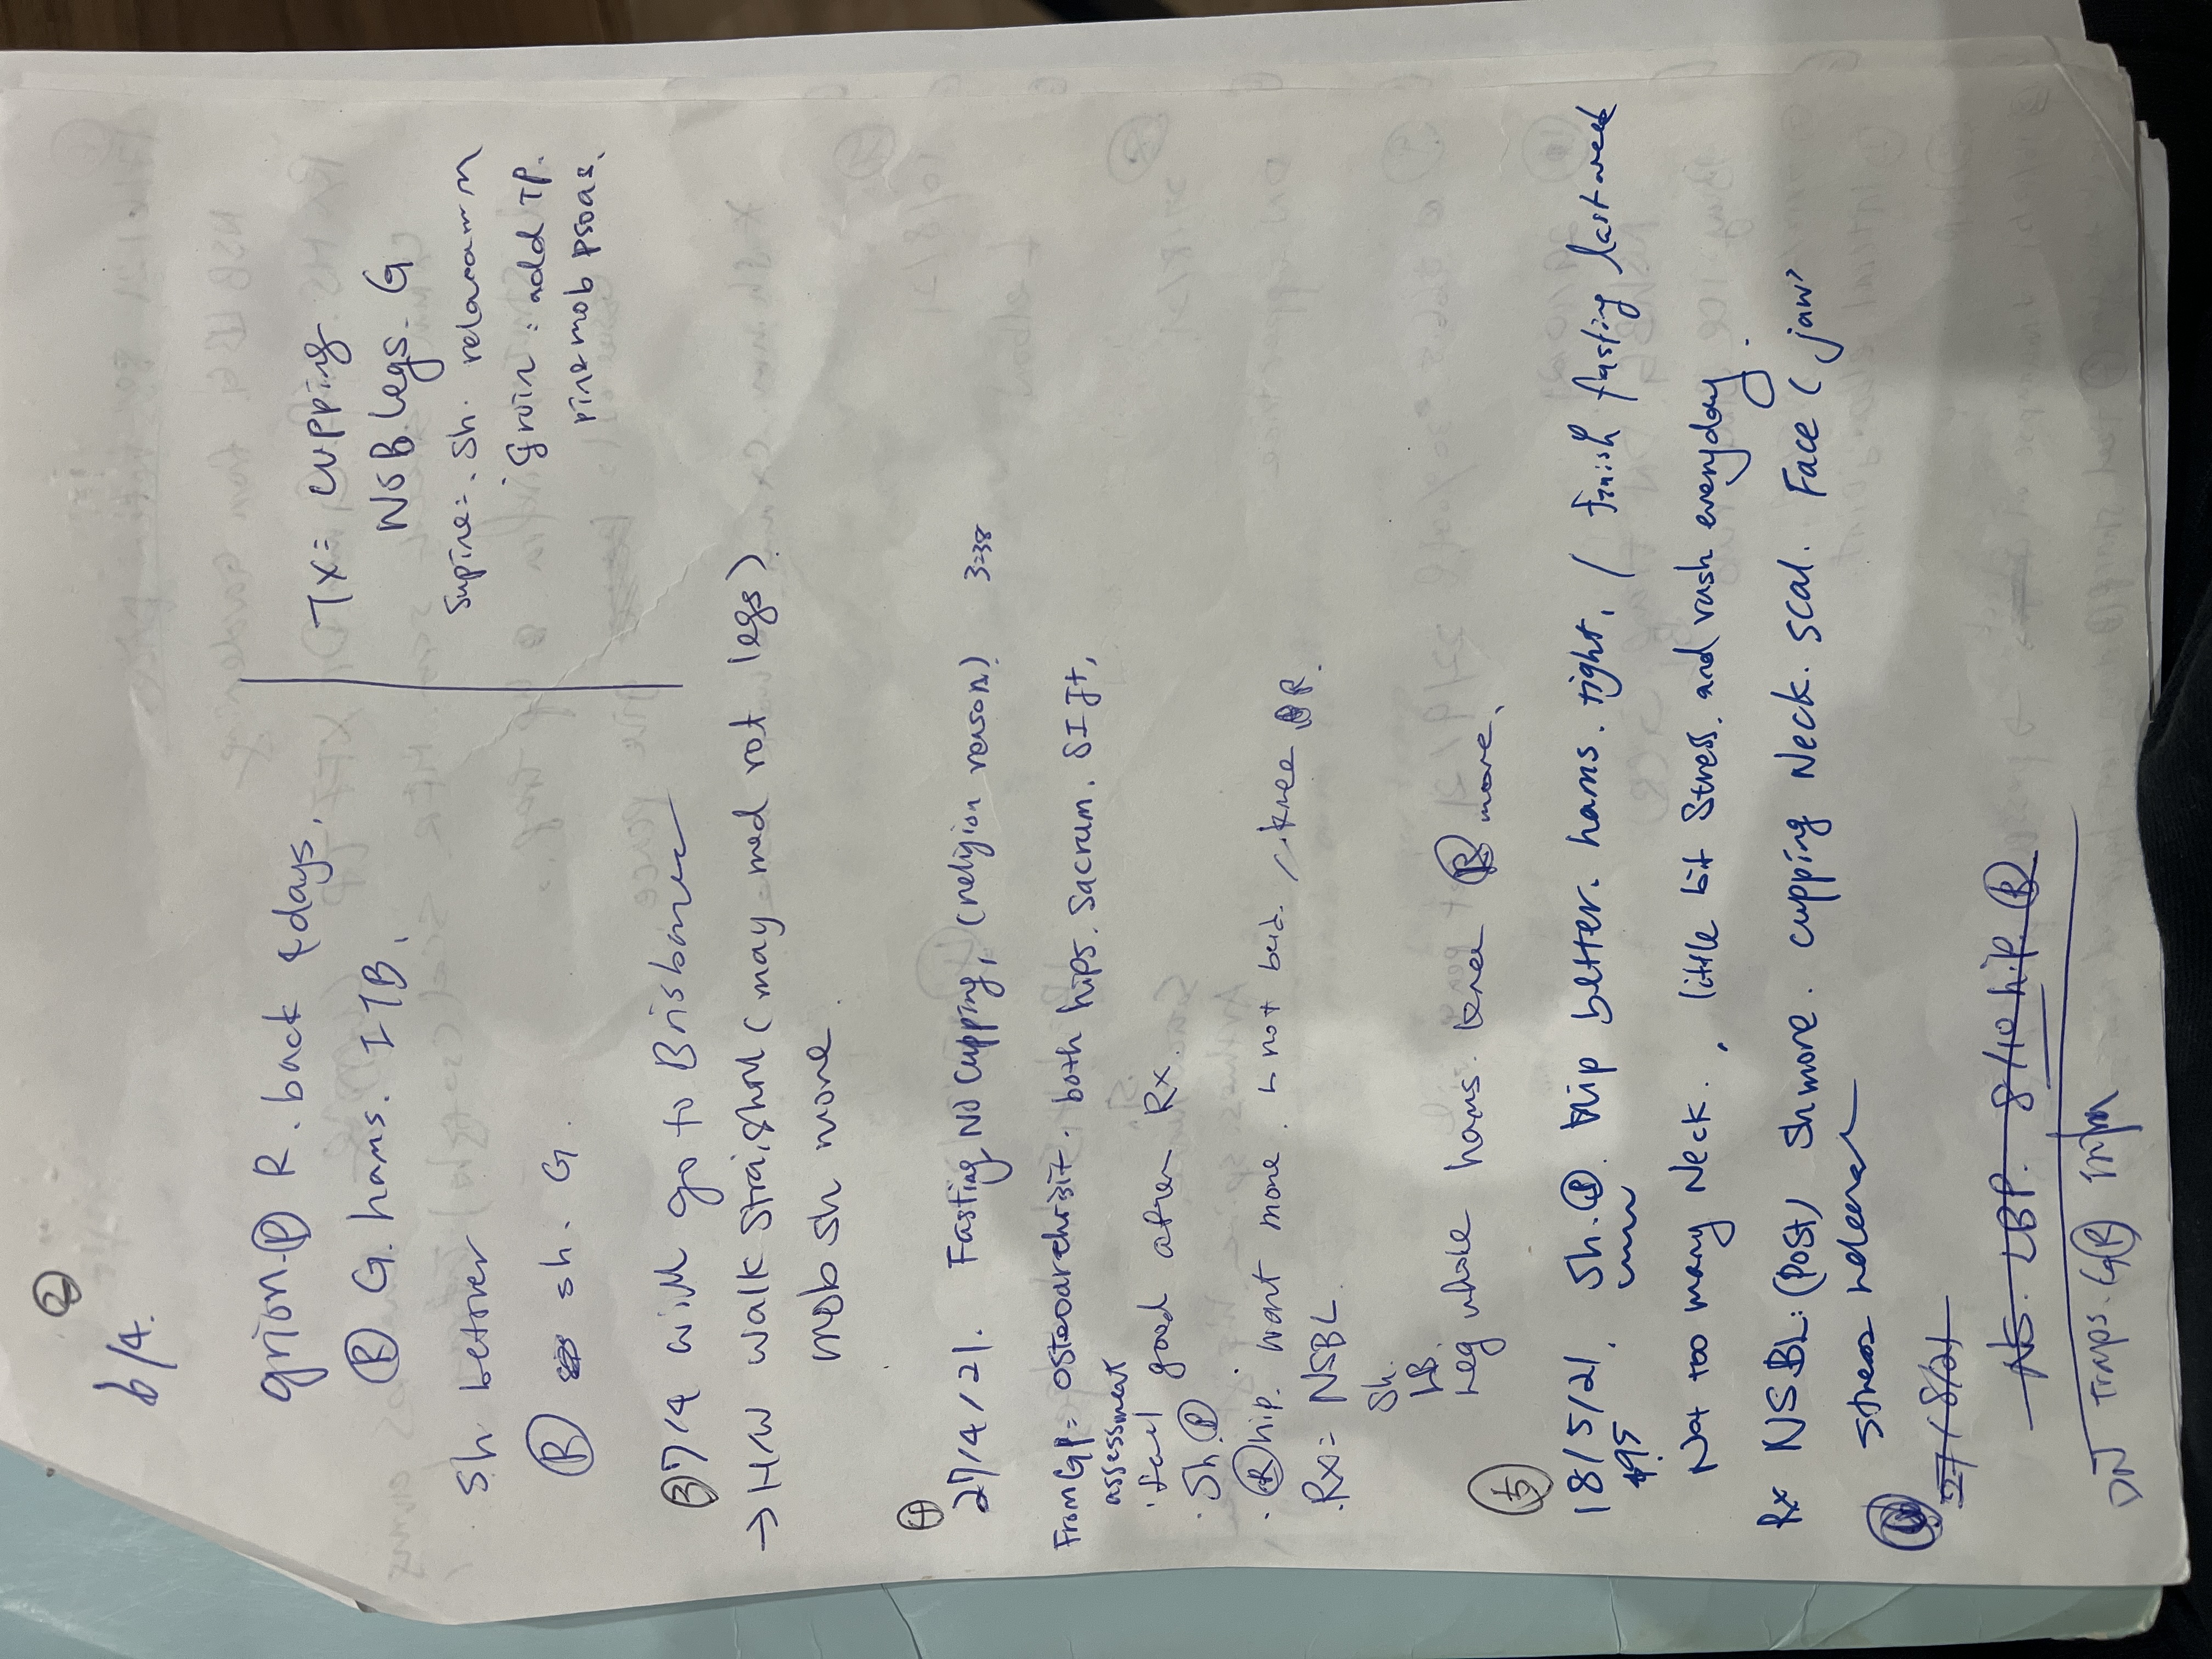 ②
6/4.
grion-Ⓟ R. back 4days.
Ⓑ G. hams. ITB.
Sh better
Ⓑ sh. G.
Tx = cupping
NSB legs. G
Supine = . Sh. relaxamm
. Groin : add TP.
pin & mob psoas.
③ 7/4 will go to Brisbane
→ H/W walk straight (may med rot legs)
mob sh more.
④
27/4/21. Fasting No cupping, (religion reason) 3=38
From GP = osteoarchrisit. both hips. Sacram. SIJt,
assessment
. feel good after Rx.
. Sh. Ⓟ
. Ⓡ hip. want more. knee R.
Rx = NSBL.
Sh.
Leg whole hams. knee Ⓡ more.
⑤
18/5/21. Sh. Ⓟ. hip better. hams. tight, ( finish fasting last week
$95
Not too many Neck. , little bit stress. and rush everyday.
Rx NSBL: (Post) Sh more. cupping Neck. scal. Face ( jaw)
stress release
27/8/21
NS. LBP. 8/10 hip. Ⓡ
DN Traps. G Ⓡ